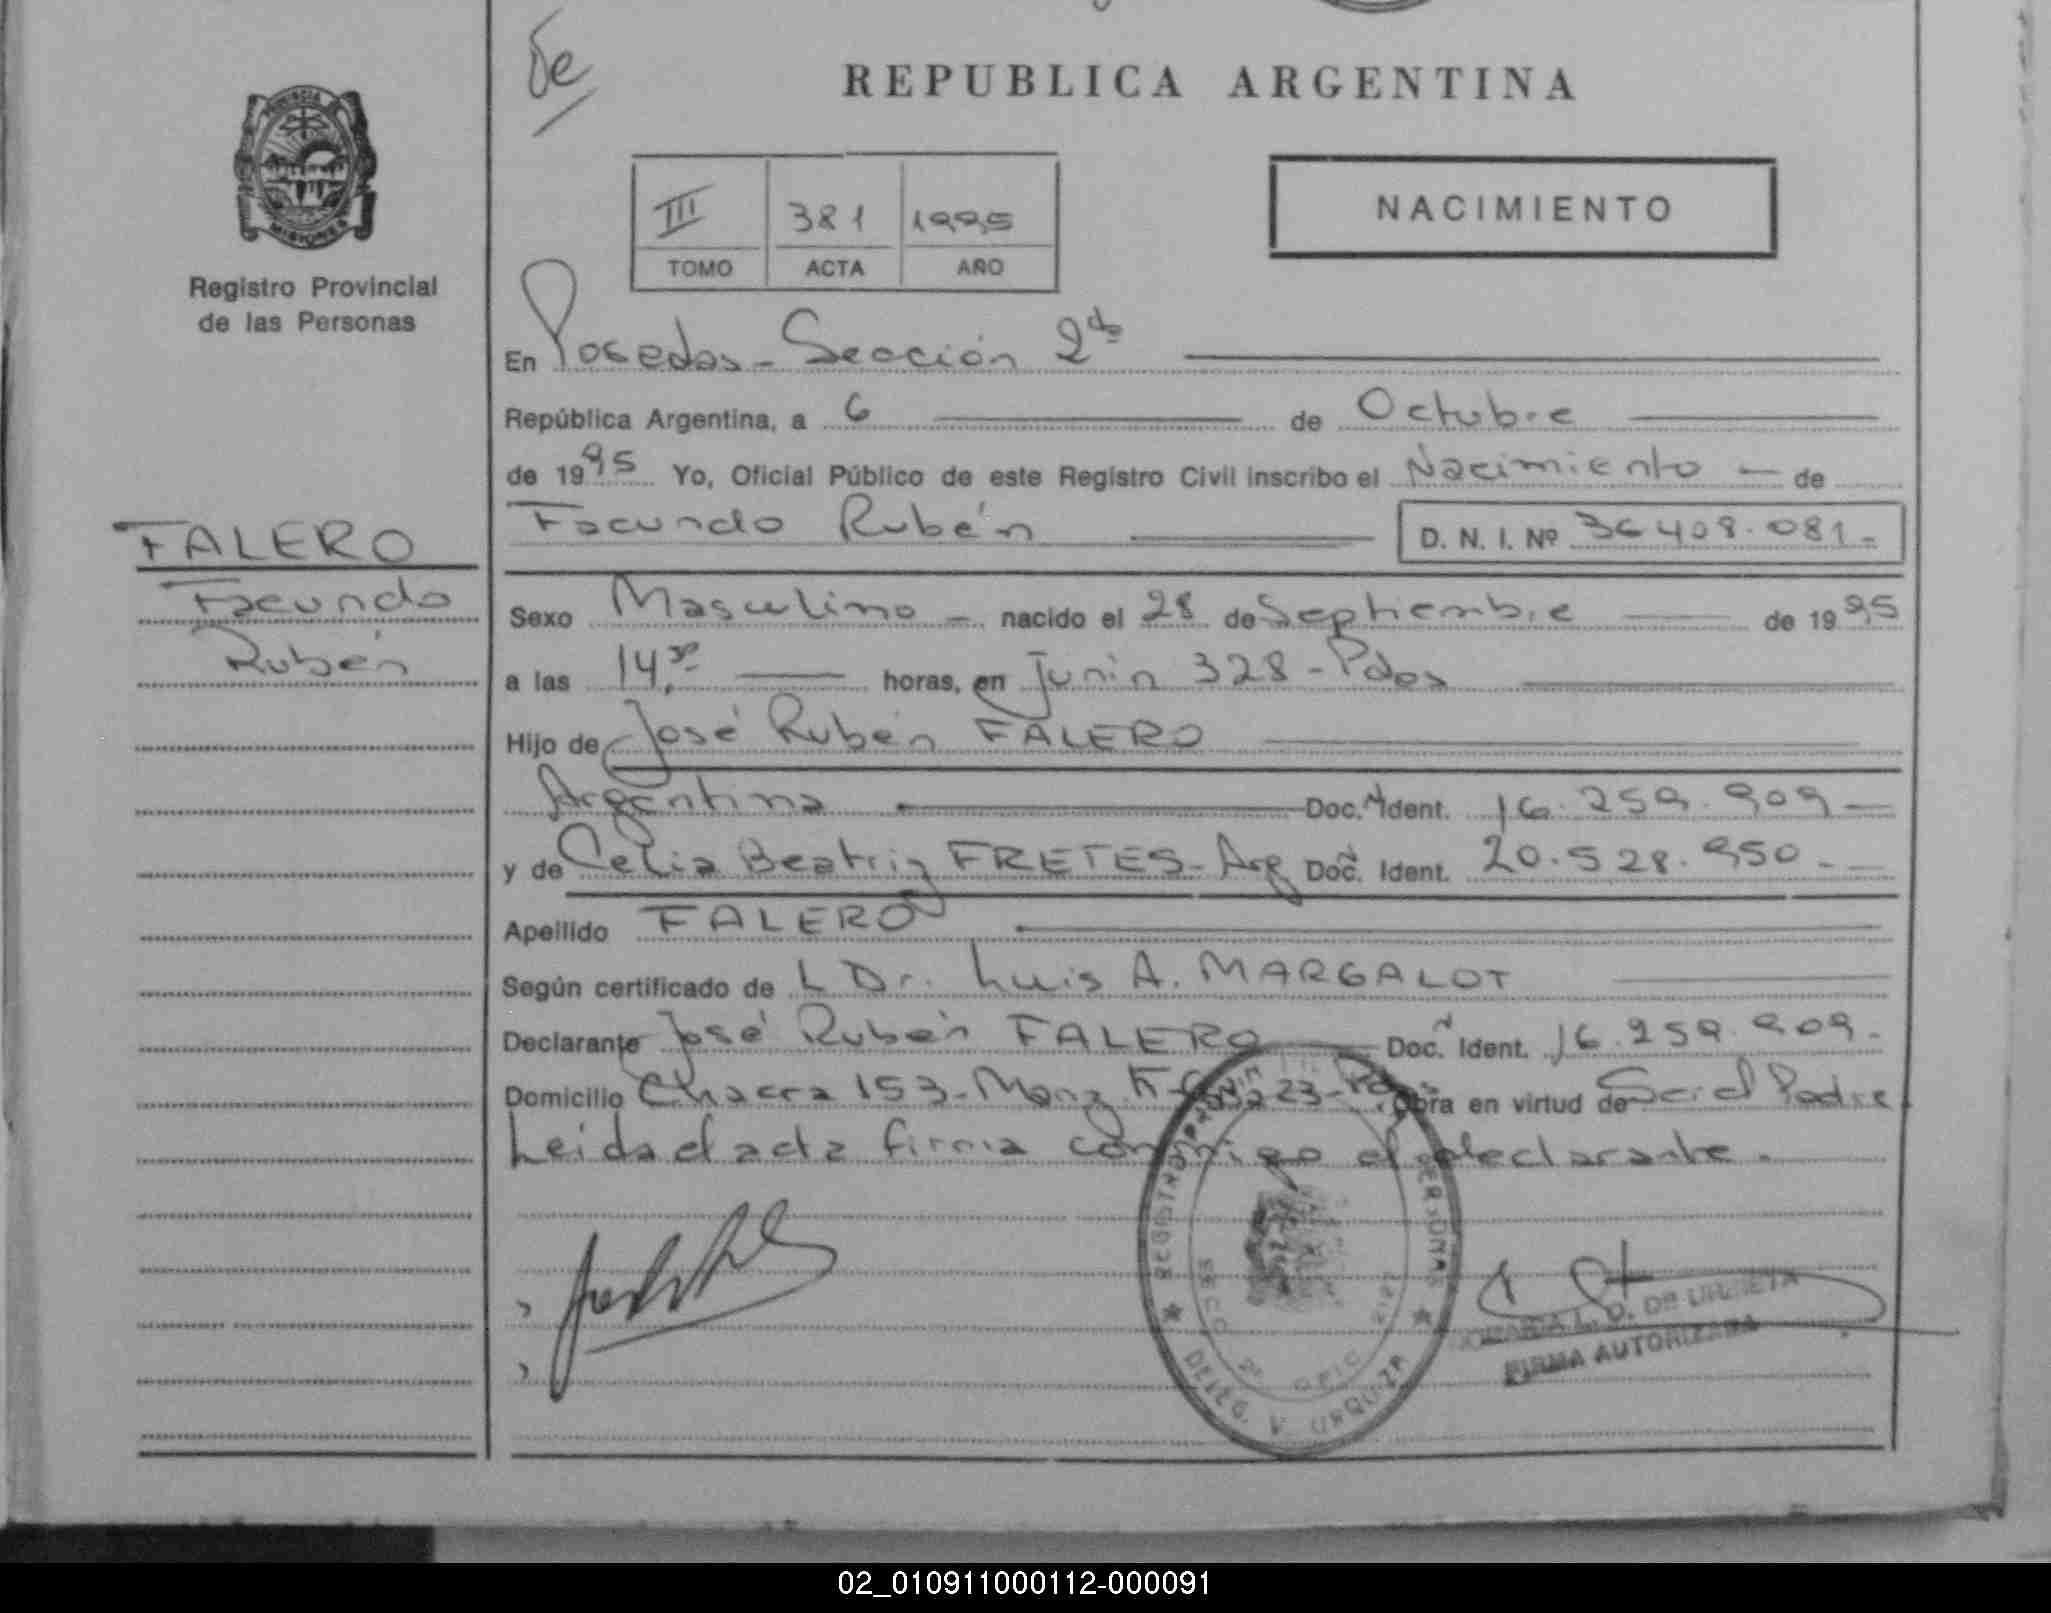 de
REPUBLICA ARGENTINA
PROVINCIA
MISIONES
Registro Provincial
de las Personas
III 381 1995
TOMO ACTA AÑO
NACIMIENTO
En Posadas - Sección 2da
República Argentina, a 6 de Octubre
de 1995 Yo, Oficial Público de este Registro Civil inscribo el Nacimiento - de
Facundo Rubén D. N. I. Nº 36408.081.-
FALERO
Facundo
Rubén
Sexo Masculino - nacido el 28 de Septiembre de 1995
a las 14,30 horas, en Junin 328 - Pdas
Hijo de José Rubén FALERO
Argentina Doc. N Ident. 16.259.909 -
y de Celia Beatriz FRETES - Arg Doc. N Ident. 20.528.950 -
Apellido FALERO
Según certificado de L Dr. Luis A. MARGALOT
Declarante José Rubén FALERO Doc. N Ident. 16.259.909.-
Domicilio Chacra 153 - Manz K - Casa 23 - Pdas. Obra en virtud de Ser el Padre
Leida el acta firma conmigo el declarante.
REGISTRO PROVIN PERSONAS
SECC 2º OFIC
DELEG. V URQUIZA
MARIA L. D. DE URRIETA
FIRMA AUTORIZADA
02_010911000112-000091